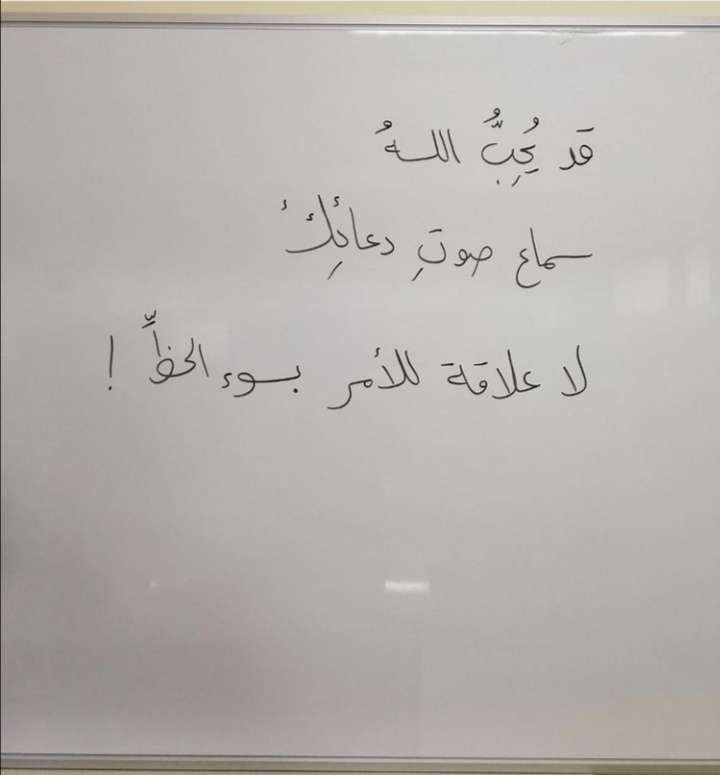 قد يُحِبُّ اللهُ
سماع صوتِ دعائِكْ
لا علاقة للأمر بسوء الحظِّ !